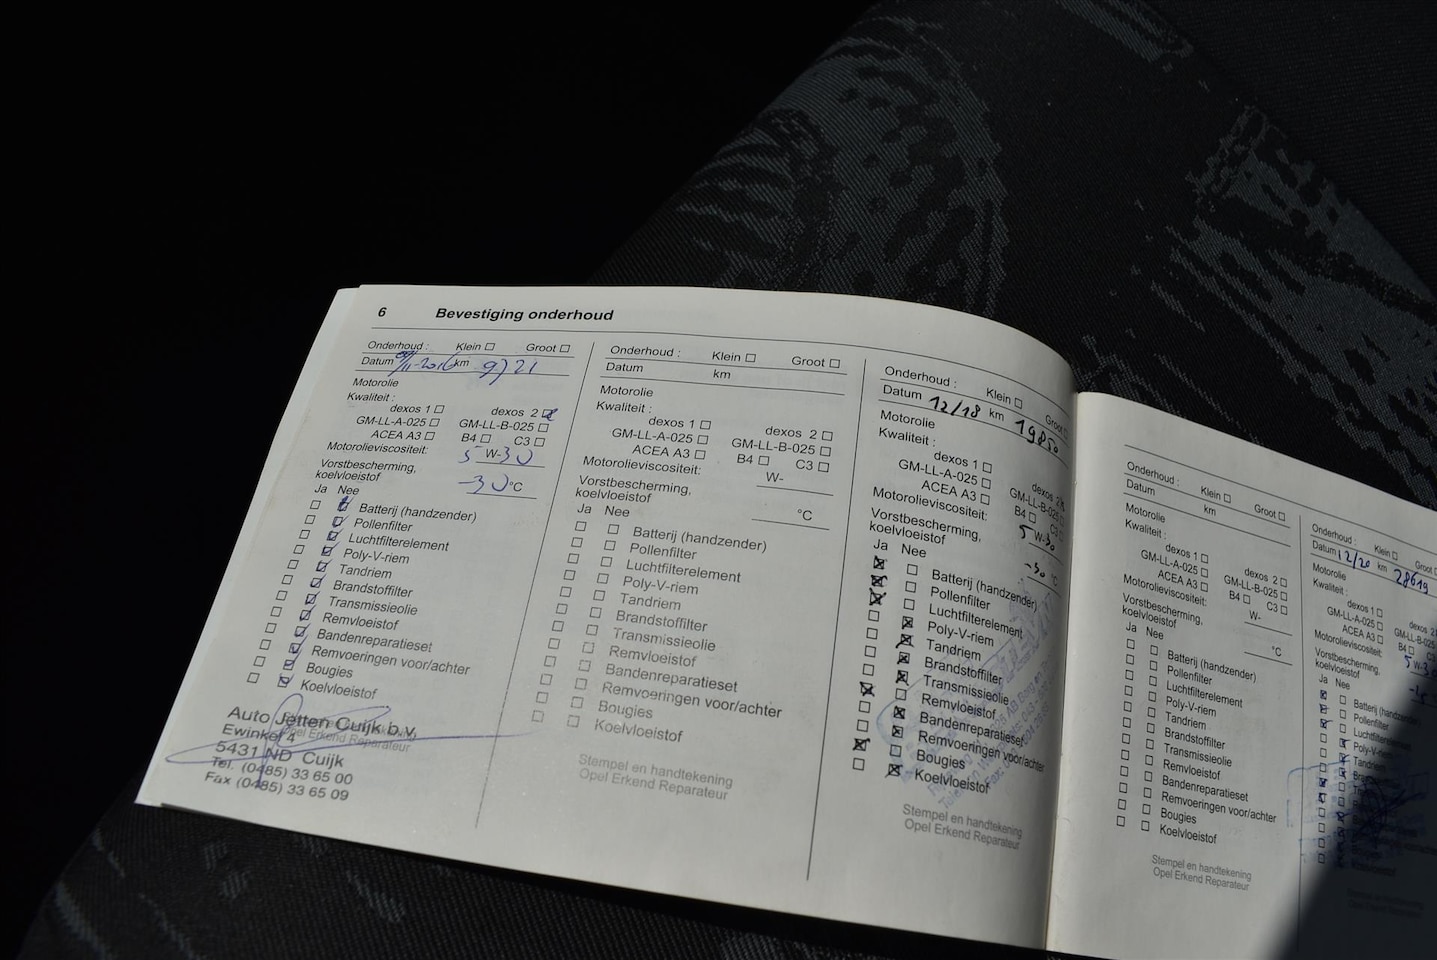 6 Bevestiging onderhoud
Onderhoud : Klein Groot
Datum 11-2016 km 9721
Motorolie
Kwaliteit :
dexos 1 dexos 2
GM-LL-A-025 GM-LL-B-025
ACEA A3 B4 C3
Motorolieviscositeit: 5 W-30
Vorstbescherming,
koelvloeistof -30 °C
Ja Nee
Batterij (handzender)
Pollenfilter
Luchtfilterelement
Poly-V-riem
Tandriem
Brandstoffilter
Transmissieolie
Remvloeistof
Bandenreparatieset
Remvoeringen voor/achter
Bougies
Koelvloeistof
Auto Jetten Cuijk b.v.
Opel Erkend Reparateur
Ewinkel 4
5431 ND Cuijk
Tel. (0485) 33 65 00
Fax (0485) 33 65 09
Onderhoud : Klein Groot
Datum km
Motorolie
Kwaliteit :
dexos 1 dexos 2
GM-LL-A-025 GM-LL-B-025
ACEA A3 B4 C3
Motorolieviscositeit:
W-
Vorstbescherming,
koelvloeistof °C
Ja Nee
Batterij (handzender)
Pollenfilter
Luchtfilterelement
Poly-V-riem
Tandriem
Brandstoffilter
Transmissieolie
Remvloeistof
Bandenreparatieset
Remvoeringen voor/achter
Bougies
Koelvloeistof
Stempel en handtekening
Opel Erkend Reparateur
Onderhoud : Klein
Datum 12/18 km 19850
Motorolie
Kwaliteit :
dexos 1 dexos 2
GM-LL-A-025 GM-LL-B-025
ACEA A3 B4 C3
Motorolieviscositeit:
5 W-30
Vorstbescherming,
koelvloeistof -30 °C
Ja Nee
Batterij (handzender)
Pollenfilter
Luchtfilterelement
Poly-V-riem
Tandriem
Brandstoffilter
Transmissieolie
Remvloeistof
Bandenreparatieset
Remvoeringen voor/achter
Bougies
Koelvloeistof
Stempel en handtekening
Opel Erkend Reparateur
Onderhoud : Klein Groot
Datum km
Motorolie
Kwaliteit :
dexos 1 dexos 2
GM-LL-A-025 GM-LL-B-025
ACEA A3 B4 C3
Motorolieviscositeit: W-
Vorstbescherming,
koelvloeistof °C
Ja Nee
Batterij (handzender)
Pollenfilter
Luchtfilterelement
Poly-V-riem
Tandriem
Brandstoffilter
Transmissieolie
Remvloeistof
Bandenreparatieset
Remvoeringen voor/achter
Bougies
Koelvloeistof
Stempel en handtekening
Opel Erkend Reparateur
Onderhoud : Klein
Datum 12/20 km 28619
Motorolie
Kwaliteit :
dexos 1
GM-LL-A-025
ACEA A3 B4
Motorolieviscositeit:
5 W-
Vorstbescherming,
koelvloeistof
Ja Nee
Batterij
Pollenfilter
Luchtfilterelement
Poly-V-riem
Tandriem